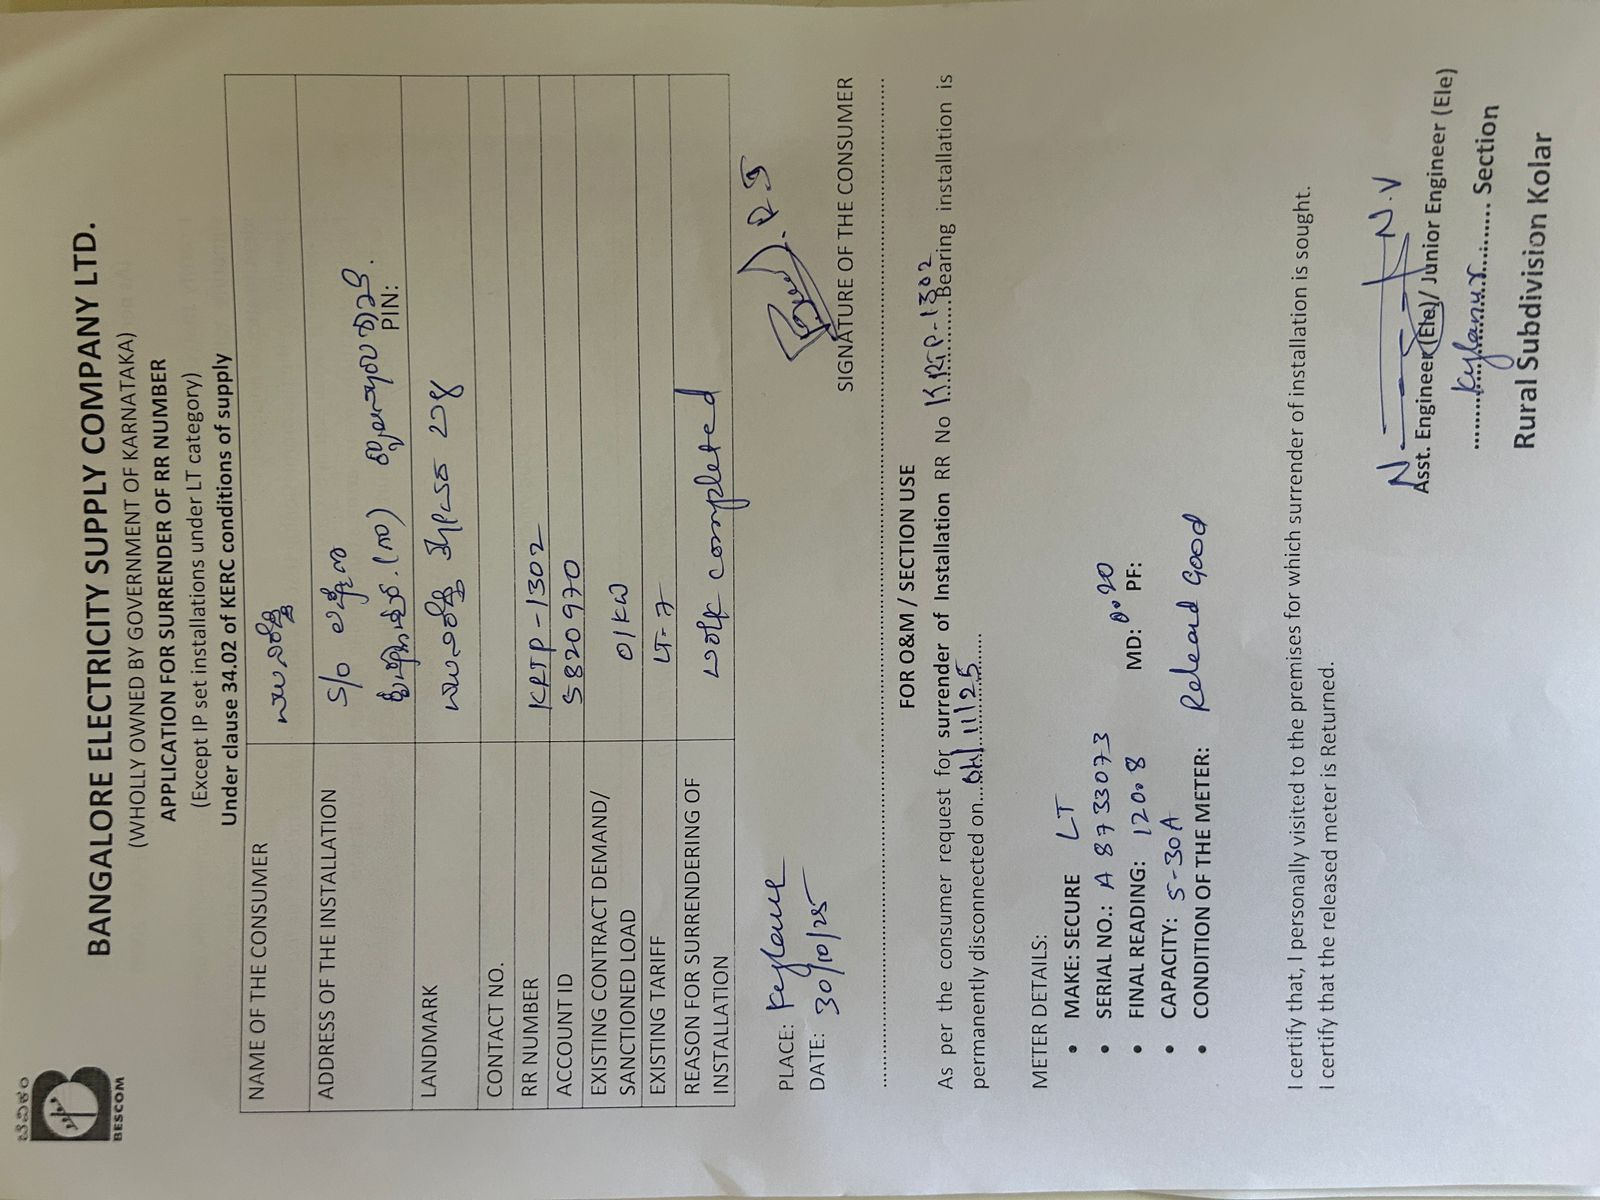 ಬೆವಿಕಂ
BESCOM
BANGALORE ELECTRICITY SUPPLY COMPANY LTD.
(WHOLLY OWNED BY GOVERNMENT OF KARNATAKA)
APPLICATION FOR SURRENDER OF RR NUMBER
(Except IP set installations under LT category)
Under clause 34.02 of KERC conditions of supply
NAME OF THE CONSUMER
ADDRESS OF THE INSTALLATION S/O
PIN:
LANDMARK
CONTACT NO.
RR NUMBER KRTP-1302
ACCOUNT ID 5820970
EXISTING CONTRACT DEMAND/ SANCTIONED LOAD 01KW
EXISTING TARIFF LT-7
REASON FOR SURRENDERING OF INSTALLATION ವರ್ಕ್ completed
PLACE:
DATE: 30/10/25
SIGNATURE OF THE CONSUMER
FOR O&M / SECTION USE
As per the consumer request for surrender of Installation RR No KRTP-1302 Bearing installation is
permanently disconnected on
METER DETAILS:
• MAKE: SECURE LT
• SERIAL NO.: A 8733073
• FINAL READING: 120.8 MD: 0.20 PF:
• CAPACITY: 5-30A
• CONDITION OF THE METER: Good
I certify that, I personally visited to the premises for which surrender of installation is sought.
I certify that the released meter is Returned.
N.V
Asst. Engineer (Ele)/ Junior Engineer (Ele)
Kylanur Section
Rural Subdivision Kolar